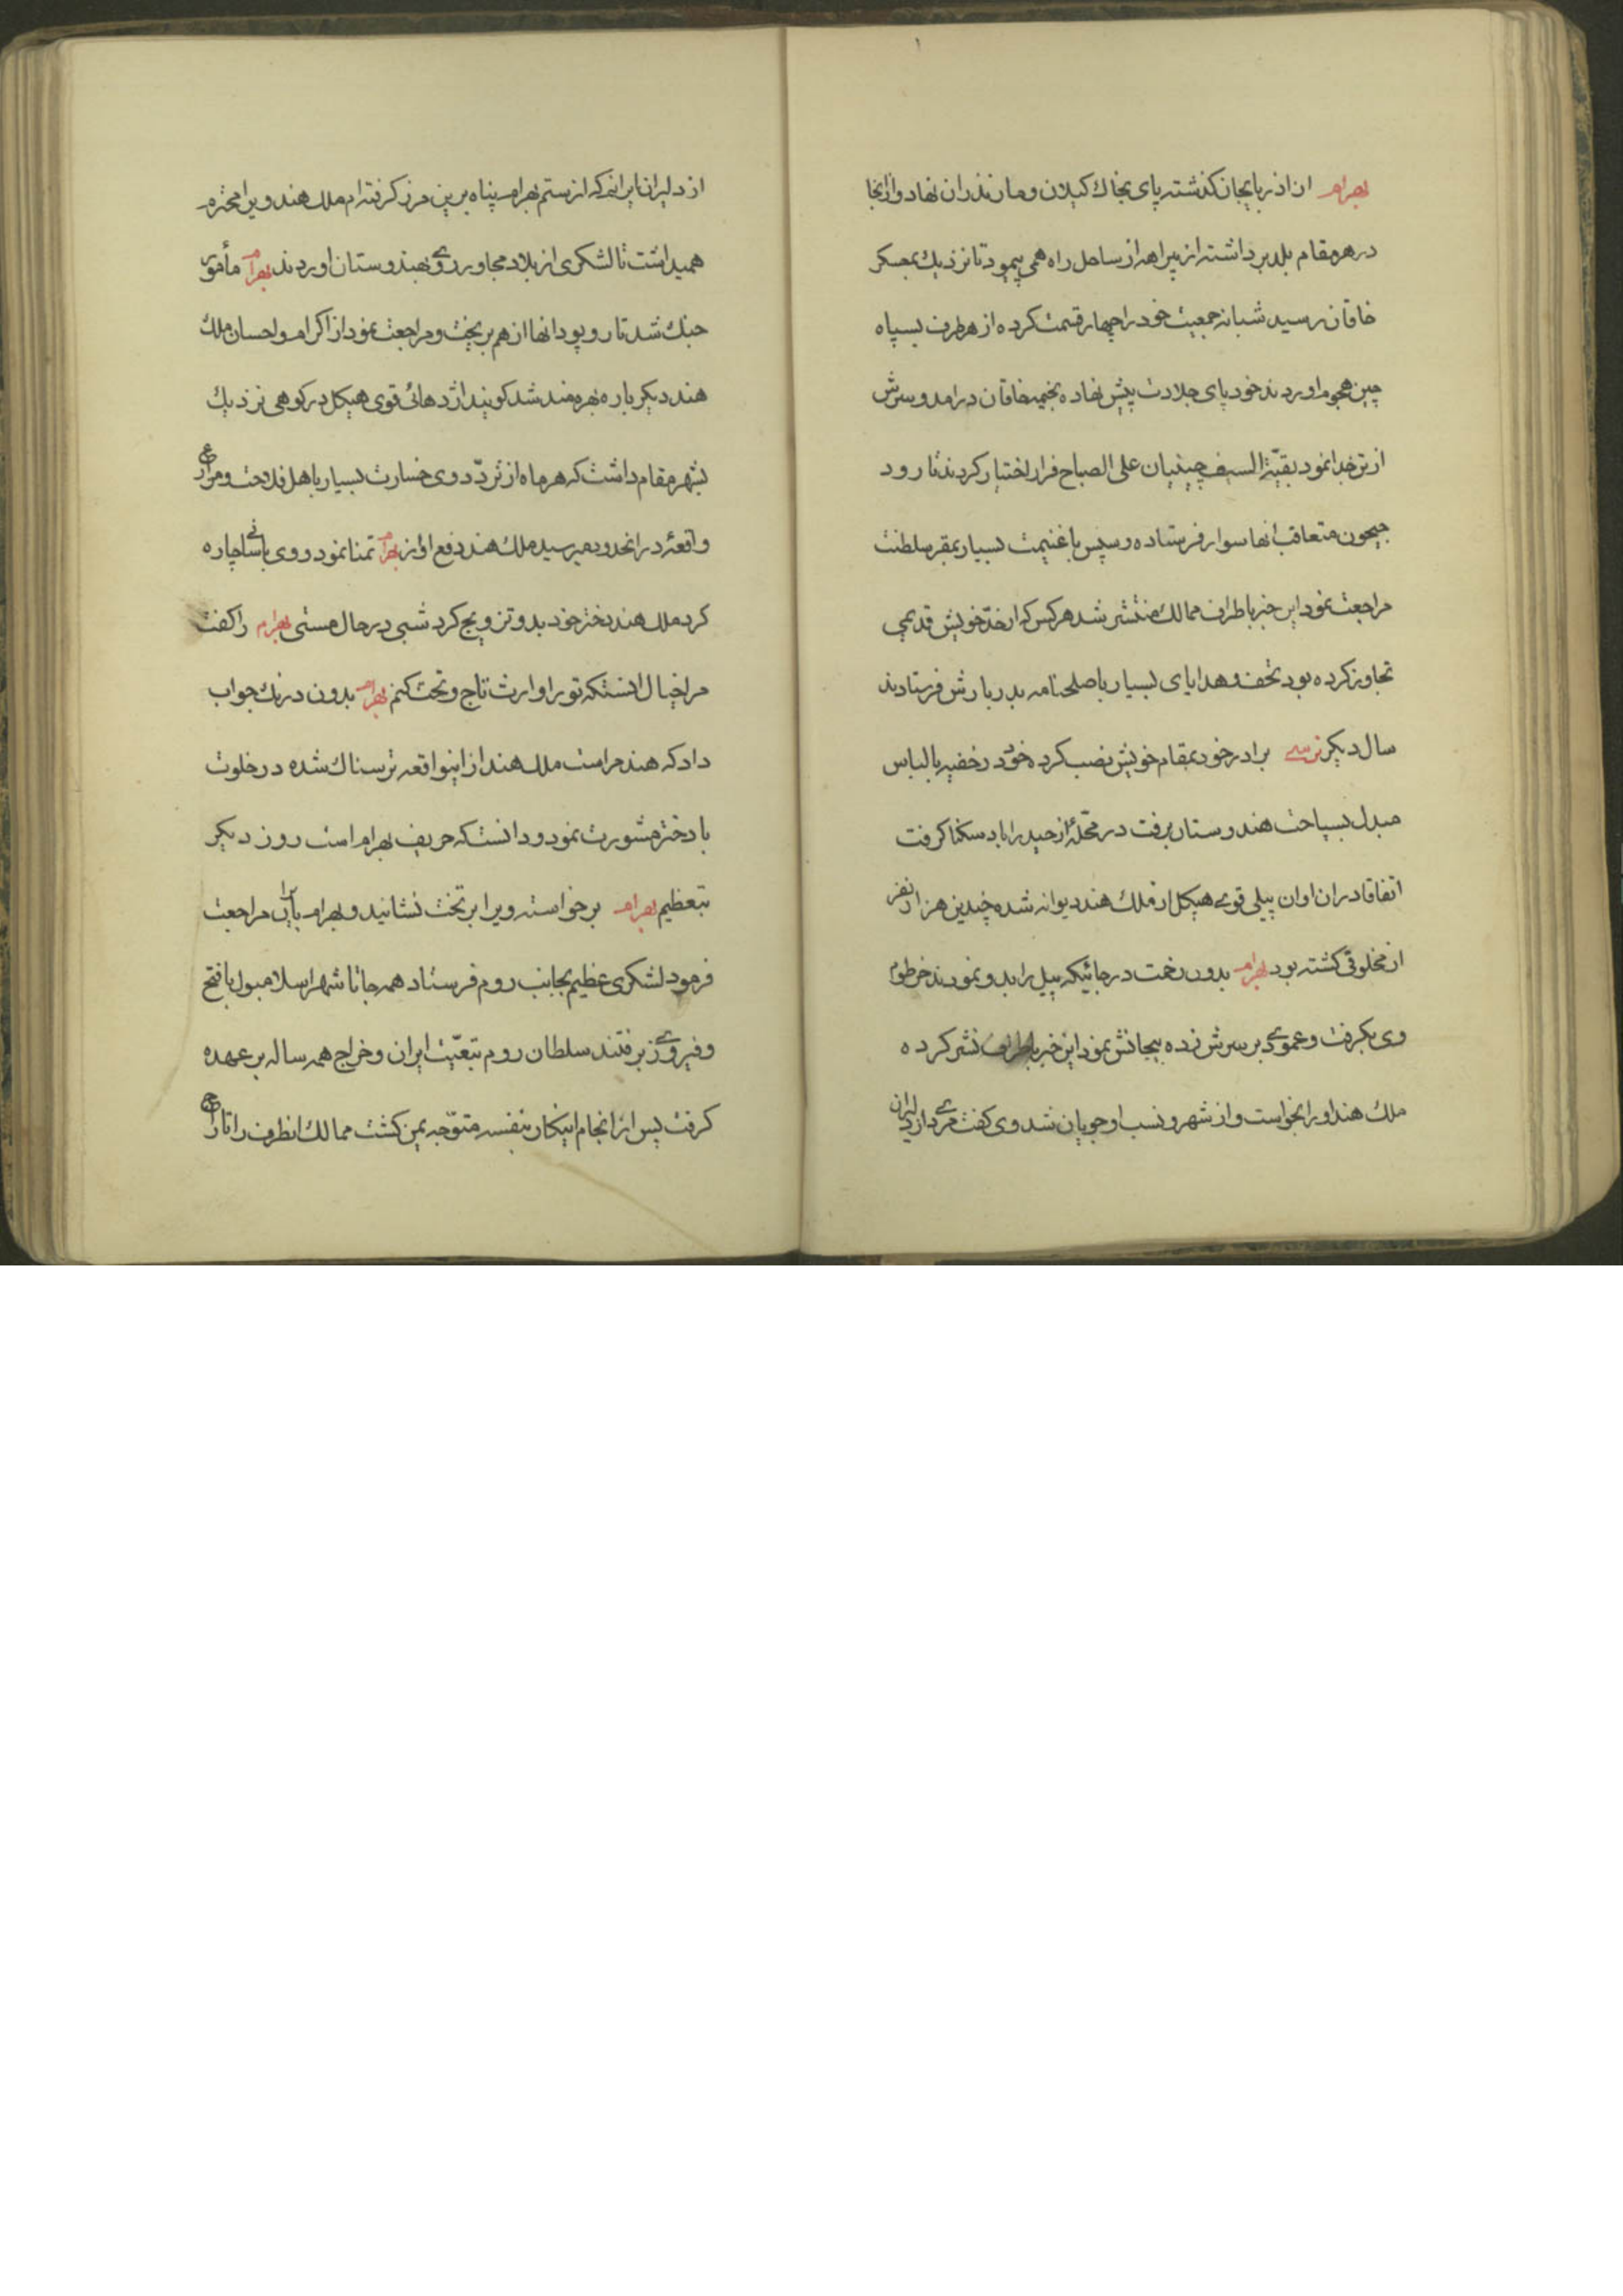 ۱
بهرام از اذربایجان کذشته پای بخاك کیلان و مازندران نهاد و ازانجا
در هر مقام بلد برداشته از بیراهه از ساحل راه همی پیمود تا نزدیك بمعسکر
خاقان رسید شبانه جمعیت خود را چهار قسمت کرده از هر طرف بسپاه
چین هجوم اوردند خود پای جلادت پیش نهاده بخیمه خاقان درامد و سرش
از تن جدا نمود بقیة السیف چینیان علی الصباح فرار اختیار کردند تا رود
جیحون متعاقب انها سوار فرستاده و سپس با غنیمت بسیار بمقر سلطنت
مراجعت نمود این خبر باطراف ممالك منتشر شد هر کس که از حدّ خویش قدمی
تجاوز کرده بود تحف و هدایای بسیار با صلحنامه بدربارش فرستادند
سال دیکر نرسی برادر خود بمقام خویش نصب کرده خود در خفیه بالباس
مبدل بسیاحت هندوستان برفت در محلهٔ از حیدراباد سکنا کرفت
اتفاقا در ان اوان پیلی قوی هیکل از ملك هند دیوانه شده چندین هزار نفر
از مخلوق کشته بود بهرام بدون رخت در جائیکه پیل را بدو نمودند خرطوم
وی بکرفت و عمودی بر سرش زده بیجانش نمود این خبر باطراف نشر کرده
ملك هند او را بخواست و از شهر و نسب او جویان شد وی کفت مردی از دلیران
از دلیران ایرانم که از ستم بهرام پناه برین مرز کرفته‌ام ملك هند ویرا محترم
همیداشت تا لشکری از بلاد مجاور روی بهندوستان اوردند بهرام مأمور
جنك شد تا رو پود انها از هم بریخت و مراجعت نمود از اکرام و احسان ملك
هند دیکر باره بهره‌مند شد کویند اژدهائی قوی هیکل در کوهی نزدیك
بشهر مقام داشت که هر ماه از تردّد وی خسارت بسیار باهل فلاحت و مزارع
واقعهٔ در انحدود میرسید ملك هند دفع او از بهرام تمنا نمود و وی باسانی چاره
کرد ملك هند دختر خود بدو تزویج کرد شبی در حال مستی بهرام را کفت
مرا خیال انستکه تو را وارث تاج و تخت کنم بهرام بدون درنك جواب
داد که هند مراست ملك هند از اینواقعه ترسناك شده در خلوت
با دختر مشورت نمود و دانست که حریف بهرام است روز دیکر
بتعظیم بهرام برخواسته ویرا بر تخت نشانید و بهرام بایران مراجعت
فرمود لشکری عظیم بجانب روم فرستاد همه جا تا شهر اسلامبول با فتح
و فیروزی برفتند سلطان روم تبعیّت ایران و خراج همه ساله بر عهده
کرفت پس از انجام اینکار بنفسه متوّجه یمن کشت ممالك انطرف را تاراج